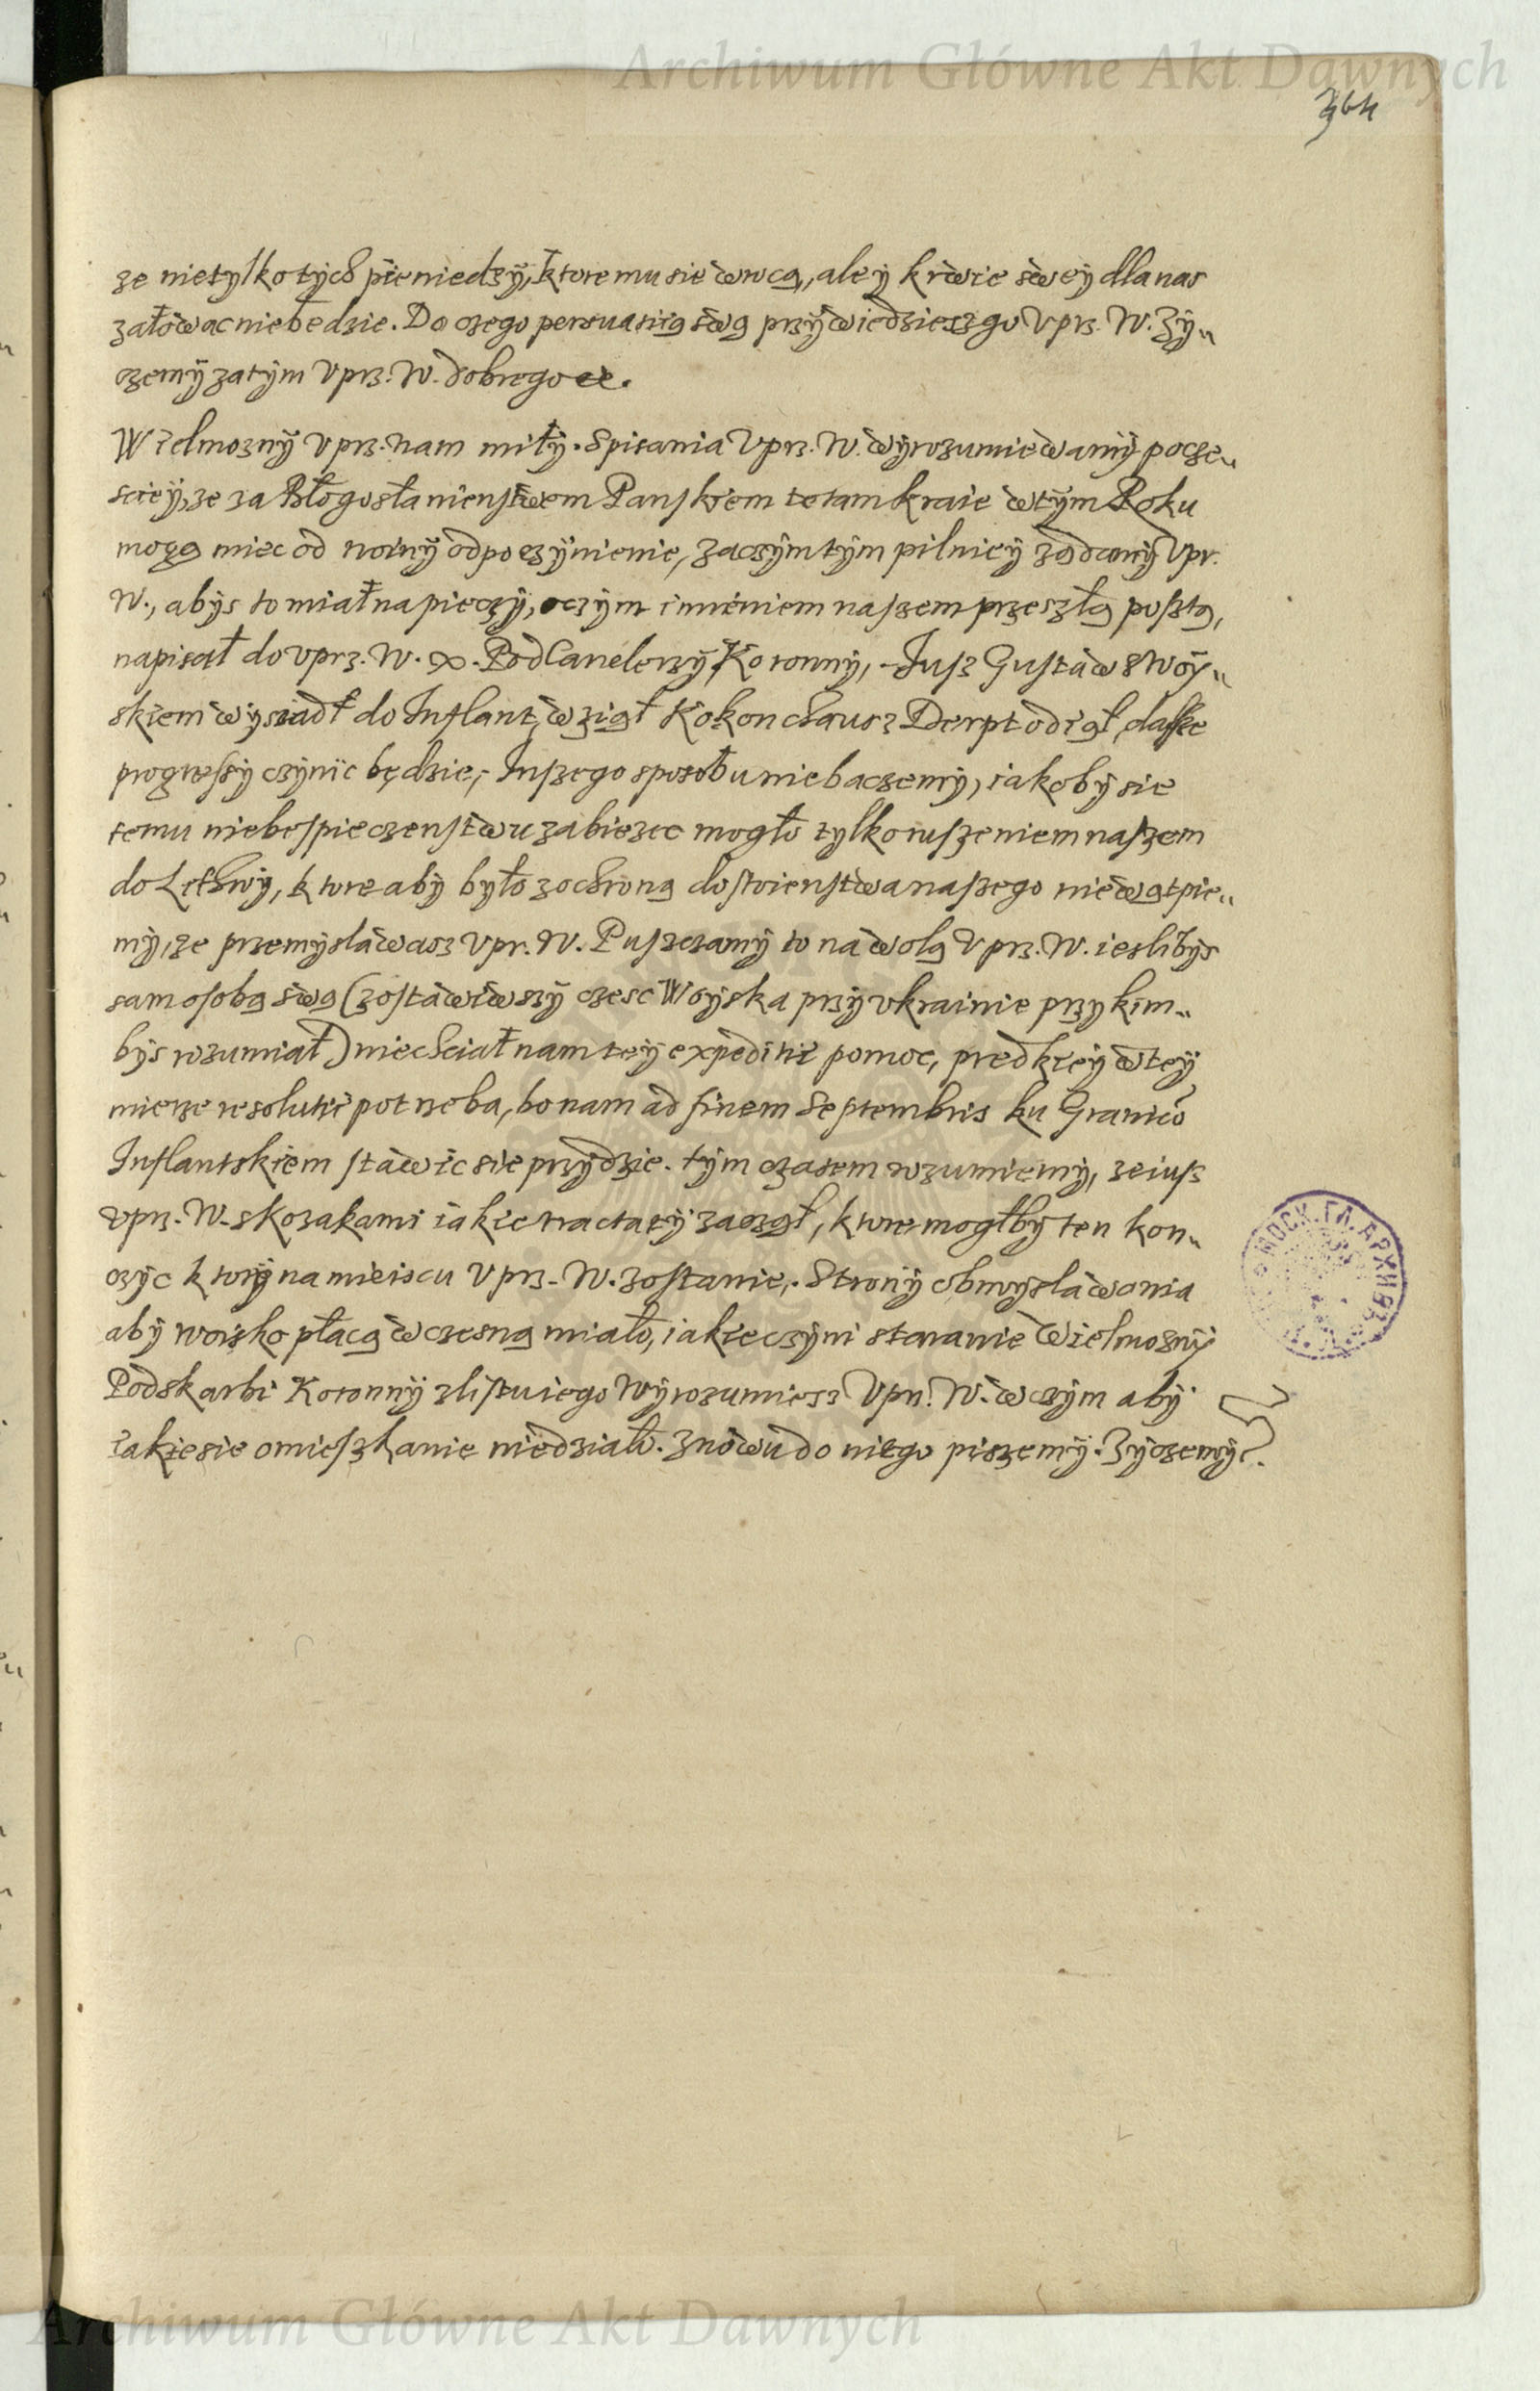 Archiwum Główne Akt Dawnych
364
ze nietylko tych pieniedzÿ, ktore mu sie wrocą, ale ÿ krwie swey dla nas
załowac niebedzie. Do czego persuasią swą przÿwiedziesz go Vprz. W. Zÿ„
czemÿ zatÿm Vprz. W. dobrego etc.
Wielmoznÿ Vprz. nam miłÿ. Spisania Vprz. W. wÿrozumiewamÿ pocze„
scieÿ, ze za Błogosłanienstwem Panskiem te tam kraie wtÿm Roku
mogą miec od woinÿ odpoczÿnienie, zaczÿm tÿm pilnieÿ ządamÿ Vpr.
W., abÿs to miał na pieczÿ, oczÿm imieniem naszem przeszłą posztą,
napisał do vprz. W. X. Podcanclerzÿ Koronnÿ, Jusz Gustaw z Woÿ„
skiem wÿsiadł do Inflant, wziął Kokonchausz Derpt odiął, dalsze
progressÿ czÿnic będzie, Inszego sposobu niebaczemÿ, iakobÿ sie
temu niebespieczenstwu zabiezec mogło tylko ruszeniem naszem
do Lithwÿ, ktore abÿ było zochroną dostoienstwa naszego niewątpie„
mÿ, ze przemyslawasz Vpr. W. Puszczamÿ to na wolą Vprz. W. ieslibÿs
sam osobą swą (zostawiwszÿ czesc Woÿska przÿ vkrainie przÿ kim„
bÿs rozumiał) niechciał nam teÿ expeditiÿ pomoc, predkieÿ wteÿ
mierze resolutiÿ potrzeba, bo nam ad finem Septembris ku Granico
Inflantskiem stawic sie przÿdzie. tÿm czasem rozumiemÿ, ze iusz
vprz. W. skozakami iakie tractatÿ zaczął, ktore mogłbÿ ten kon„
czÿc ktorÿ na mieiscu Vprz. W. zostanie. Stronÿ obmyslawania
abÿ woisko płacą wczesną miało, iakie czÿni staranie Wielmoznÿ
Podskarbi Koronnÿ zlistu iego wÿrozumiesz Vprz. W. wczÿm abÿ
iakie sie omieszkanie niedziało. Znowu do niego piszemÿ. Zÿczemÿ etc.
МОСК. ГЛ. АРХИВЪ
Archiwum Główne Akt Dawnych